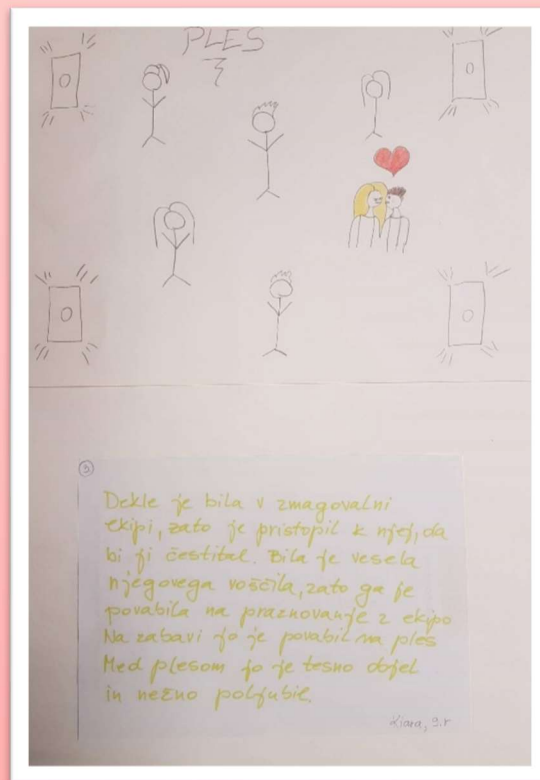 PLES
3
Dekle je bila v zmagovalni
ekipi, zato je pristopil k njej, da
bi ji čestital. Bila je vesela
njegovega voščila, zato ga je
povabila na praznovanje z ekipo
Na zabavi jo je povabil na ples
Med plesom jo je tesno objel
in nežno poljubil.
Kiara, 9.r